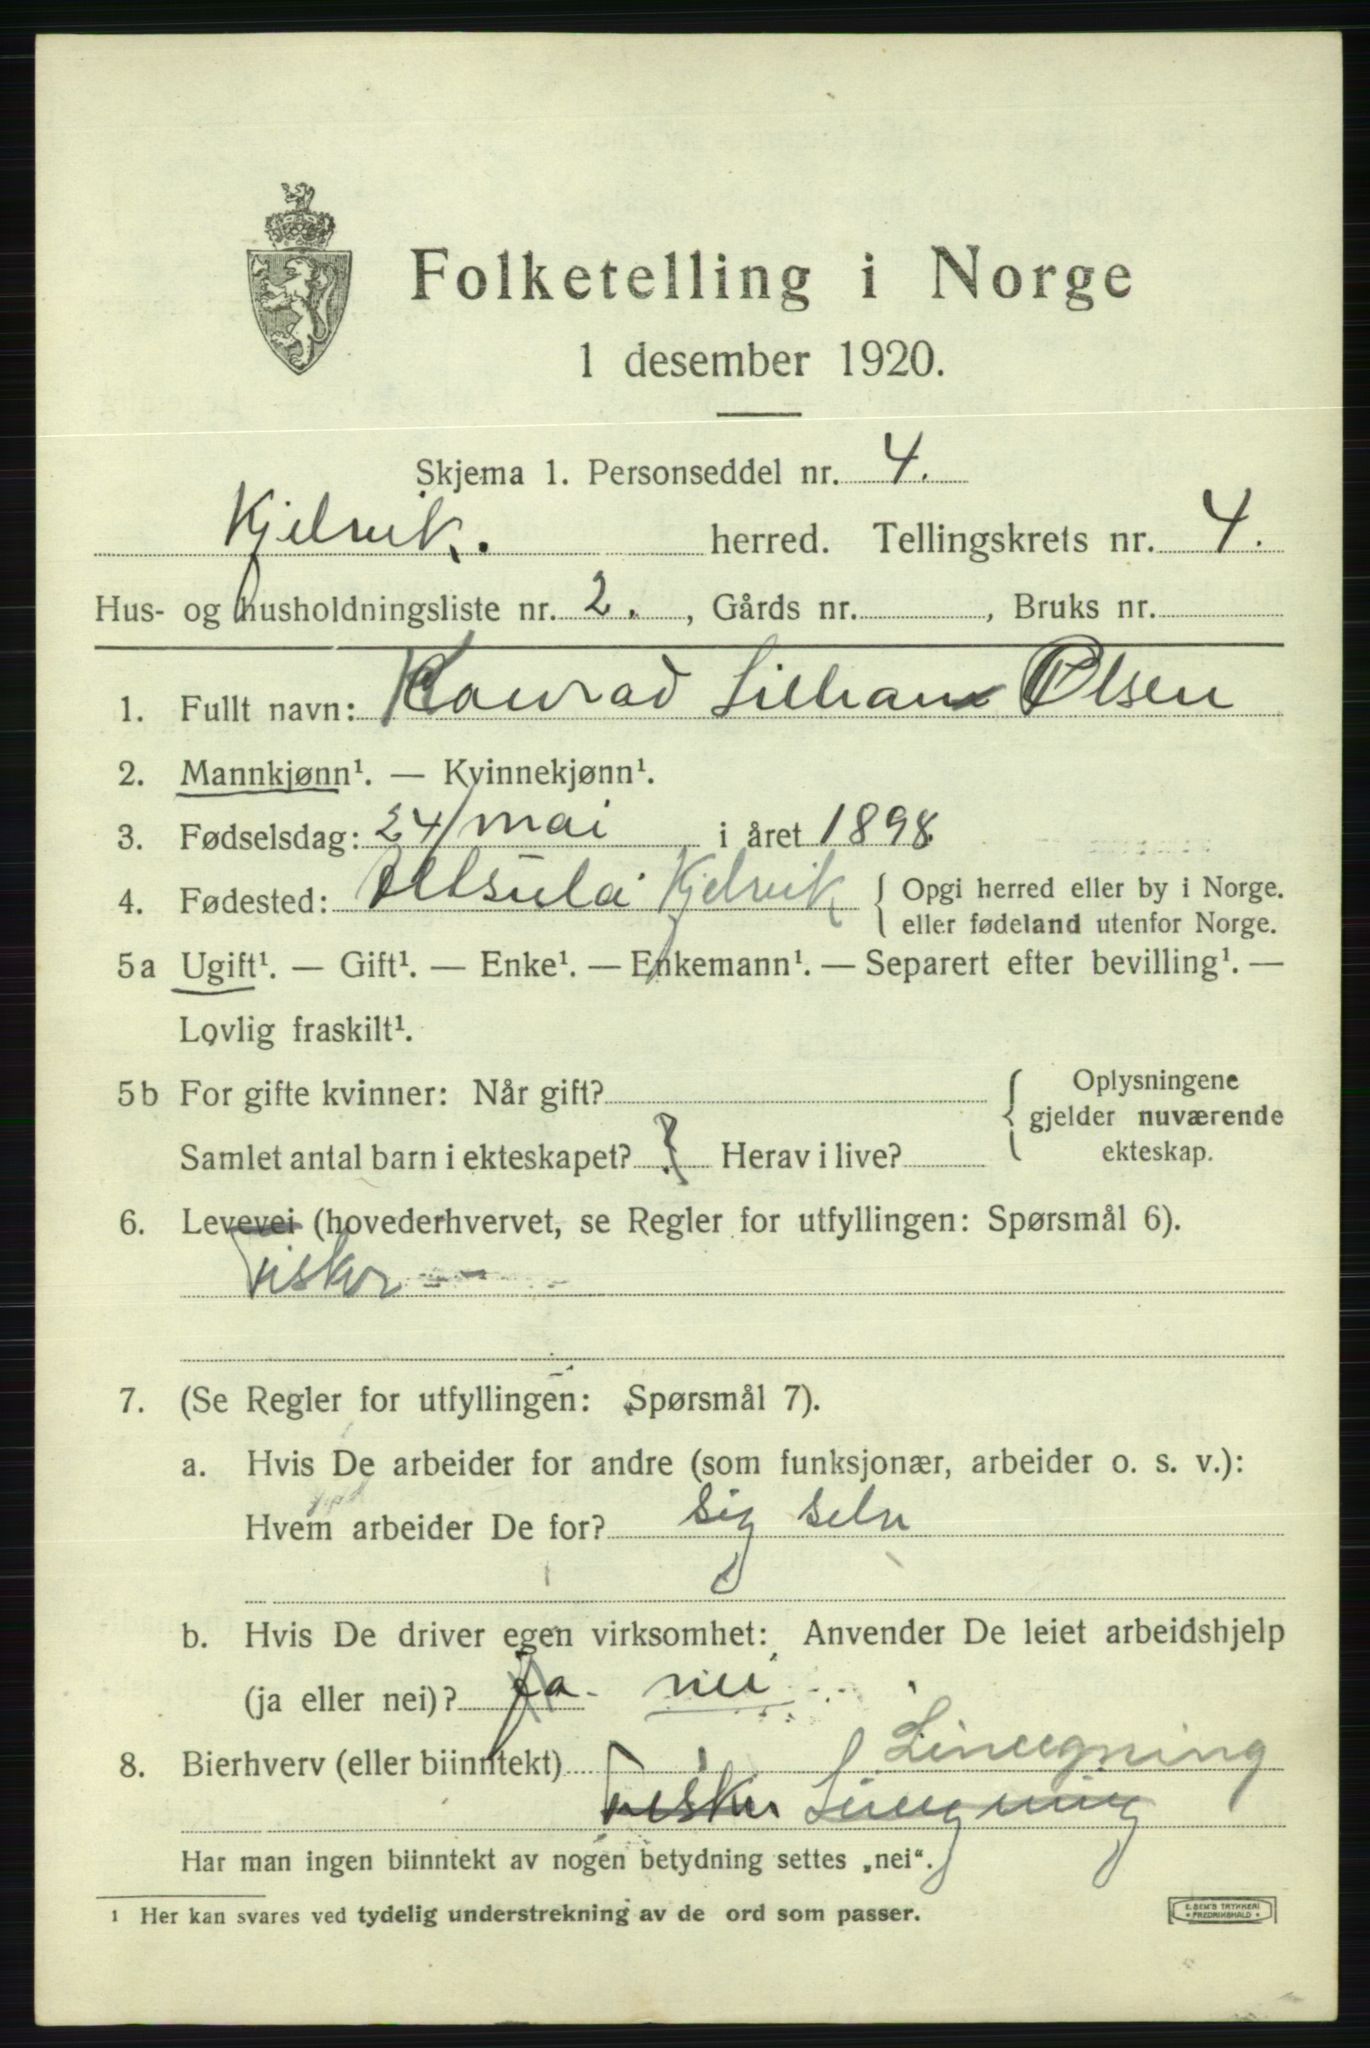 Folketelling i Norge
1 desember 1920.
Skjema 1. Personseddel nr. 4.
Kjelvik. herred. Tellingskrets nr. 4.
Hus- og husholdningsliste nr. 2. , Gårds nr. , Bruks nr.
1. Fullt navn: Konrad Olsen
2. Mannkjønn¹. — Kvinnekjønn¹.
3. Fødselsdag: 24/mai i året 1898
4. Fødested: Kjelvik { Opgi herred eller by i Norge.
eller fødeland utenfor Norge.
5a Ugift¹. — Gift¹. — Enke¹. — Enkemann¹. — Separert efter bevilling¹. —
Lovlig fraskilt¹.
5b For gifte kvinner: Når gift? { Oplysningene
gjelder nuværende
Samlet antal barn i ekteskapet? Herav i live? ekteskap.
6. Levevei (hovederhvervet, se Regler for utfyllingen: Spørsmål 6).
Fisker
7. (Se Regler for utfyllingen: Spørsmål 7).
a. Hvis De arbeider for andre (som funksjonær, arbeider o. s. v.):
Hvem arbeider De for? sig selv
b. Hvis De driver egen virksomhet: Anvender De leiet arbeidshjelp
(ja eller nei)? ja nei
8. Bierhverv (eller biinntekt) Lineegning
Fisker Lineegning
Har man ingen biinntekt av nogen betydning settes „nei“.
¹ Her kan svares ved tydelig understrekning av de ord som passer.
E. SEM'S TRYKKERI
FREDRIKSHALD